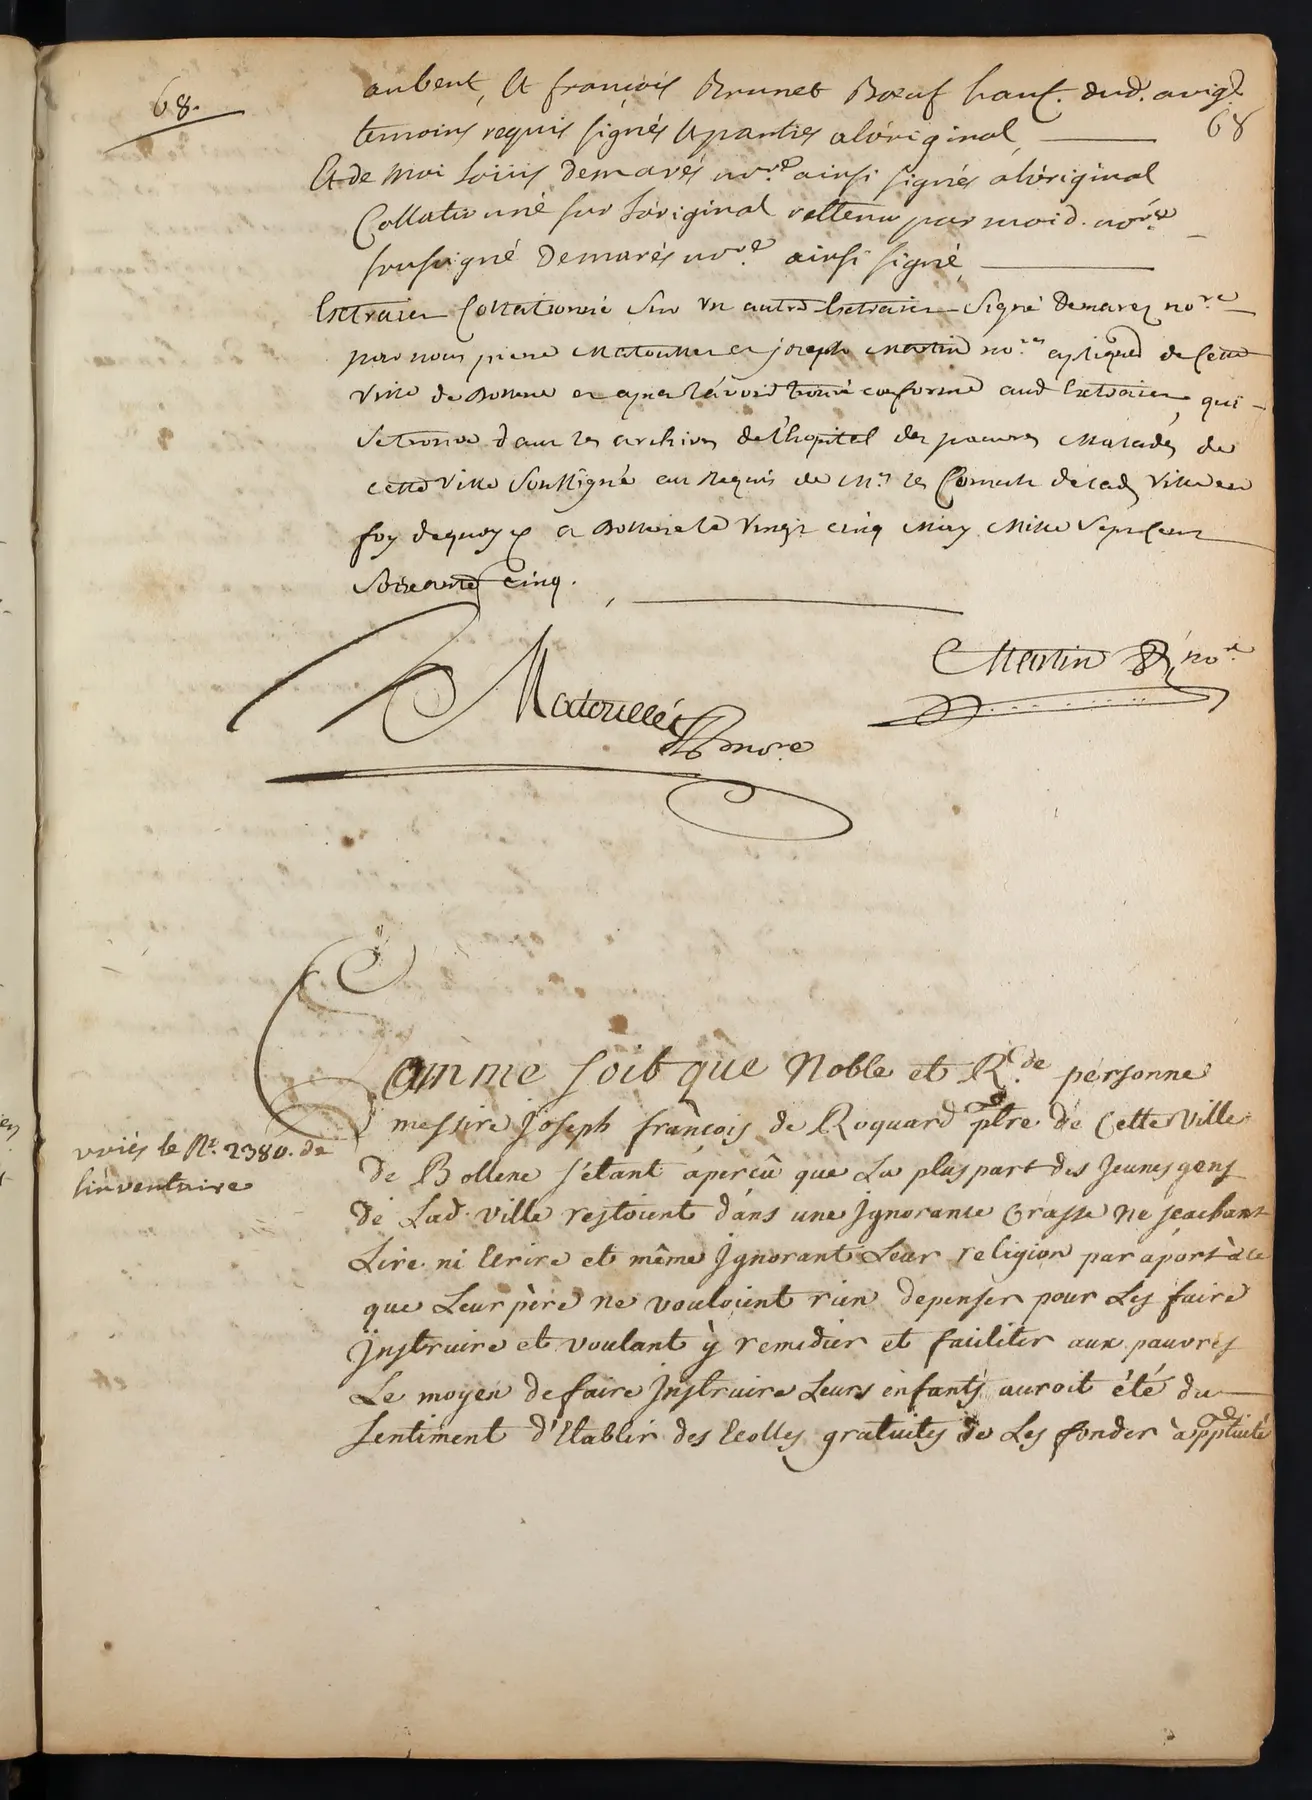 68.
aubent, et françois Brunet Bœuf hanf. dud. avig.
68
temoins requis signés et parties a l'original
Et de moi Louis Demarés nore ainsi signés a loriginal
Collationné sur Loriginal rettenu par moi d. nore
soussigné Demarés nore ainsi signé
Extrait Collationné sur un autre Extrait signé Demarez nore
par nous pierre Matouillet et joseph Martin nores apliques de Cette
Ville de Bollene et apres l'avoir trouvé conforme aud Extrait qui
se trouve dans les archives de l'hopital des pauvres Malades de
cette Ville Soussigné au Requis de Mrs les Consuls de lad. Ville en
foy de quoy a Bollene le Vingt cinq May Mille Sept Cent
Soixante cinq.
Matouillet nore
Martin nore
Comme soit que Noble et Rde personne
messire joseph françois de Roquard ptre de Cette Ville
voiés le No. 2380. de
linventaire
de Bollene s'étant áperçû que La pluspart des jeunes gens
de Lad. ville restoient dáns une jgnorante Crasse ne scachant
Lire ni Ecrire et même jgnorant Leur religion par áport à ce
que Leur père ne vouloient rien depenser pour Les faire
jnstruire et voulant ÿ remedier et faciliter aux pauvres
Le moyen de faire jnstruire Leurs enfants auroit été du
sentiment d'Etablir des Ecolles gratuites de Les fonder à ppetuité